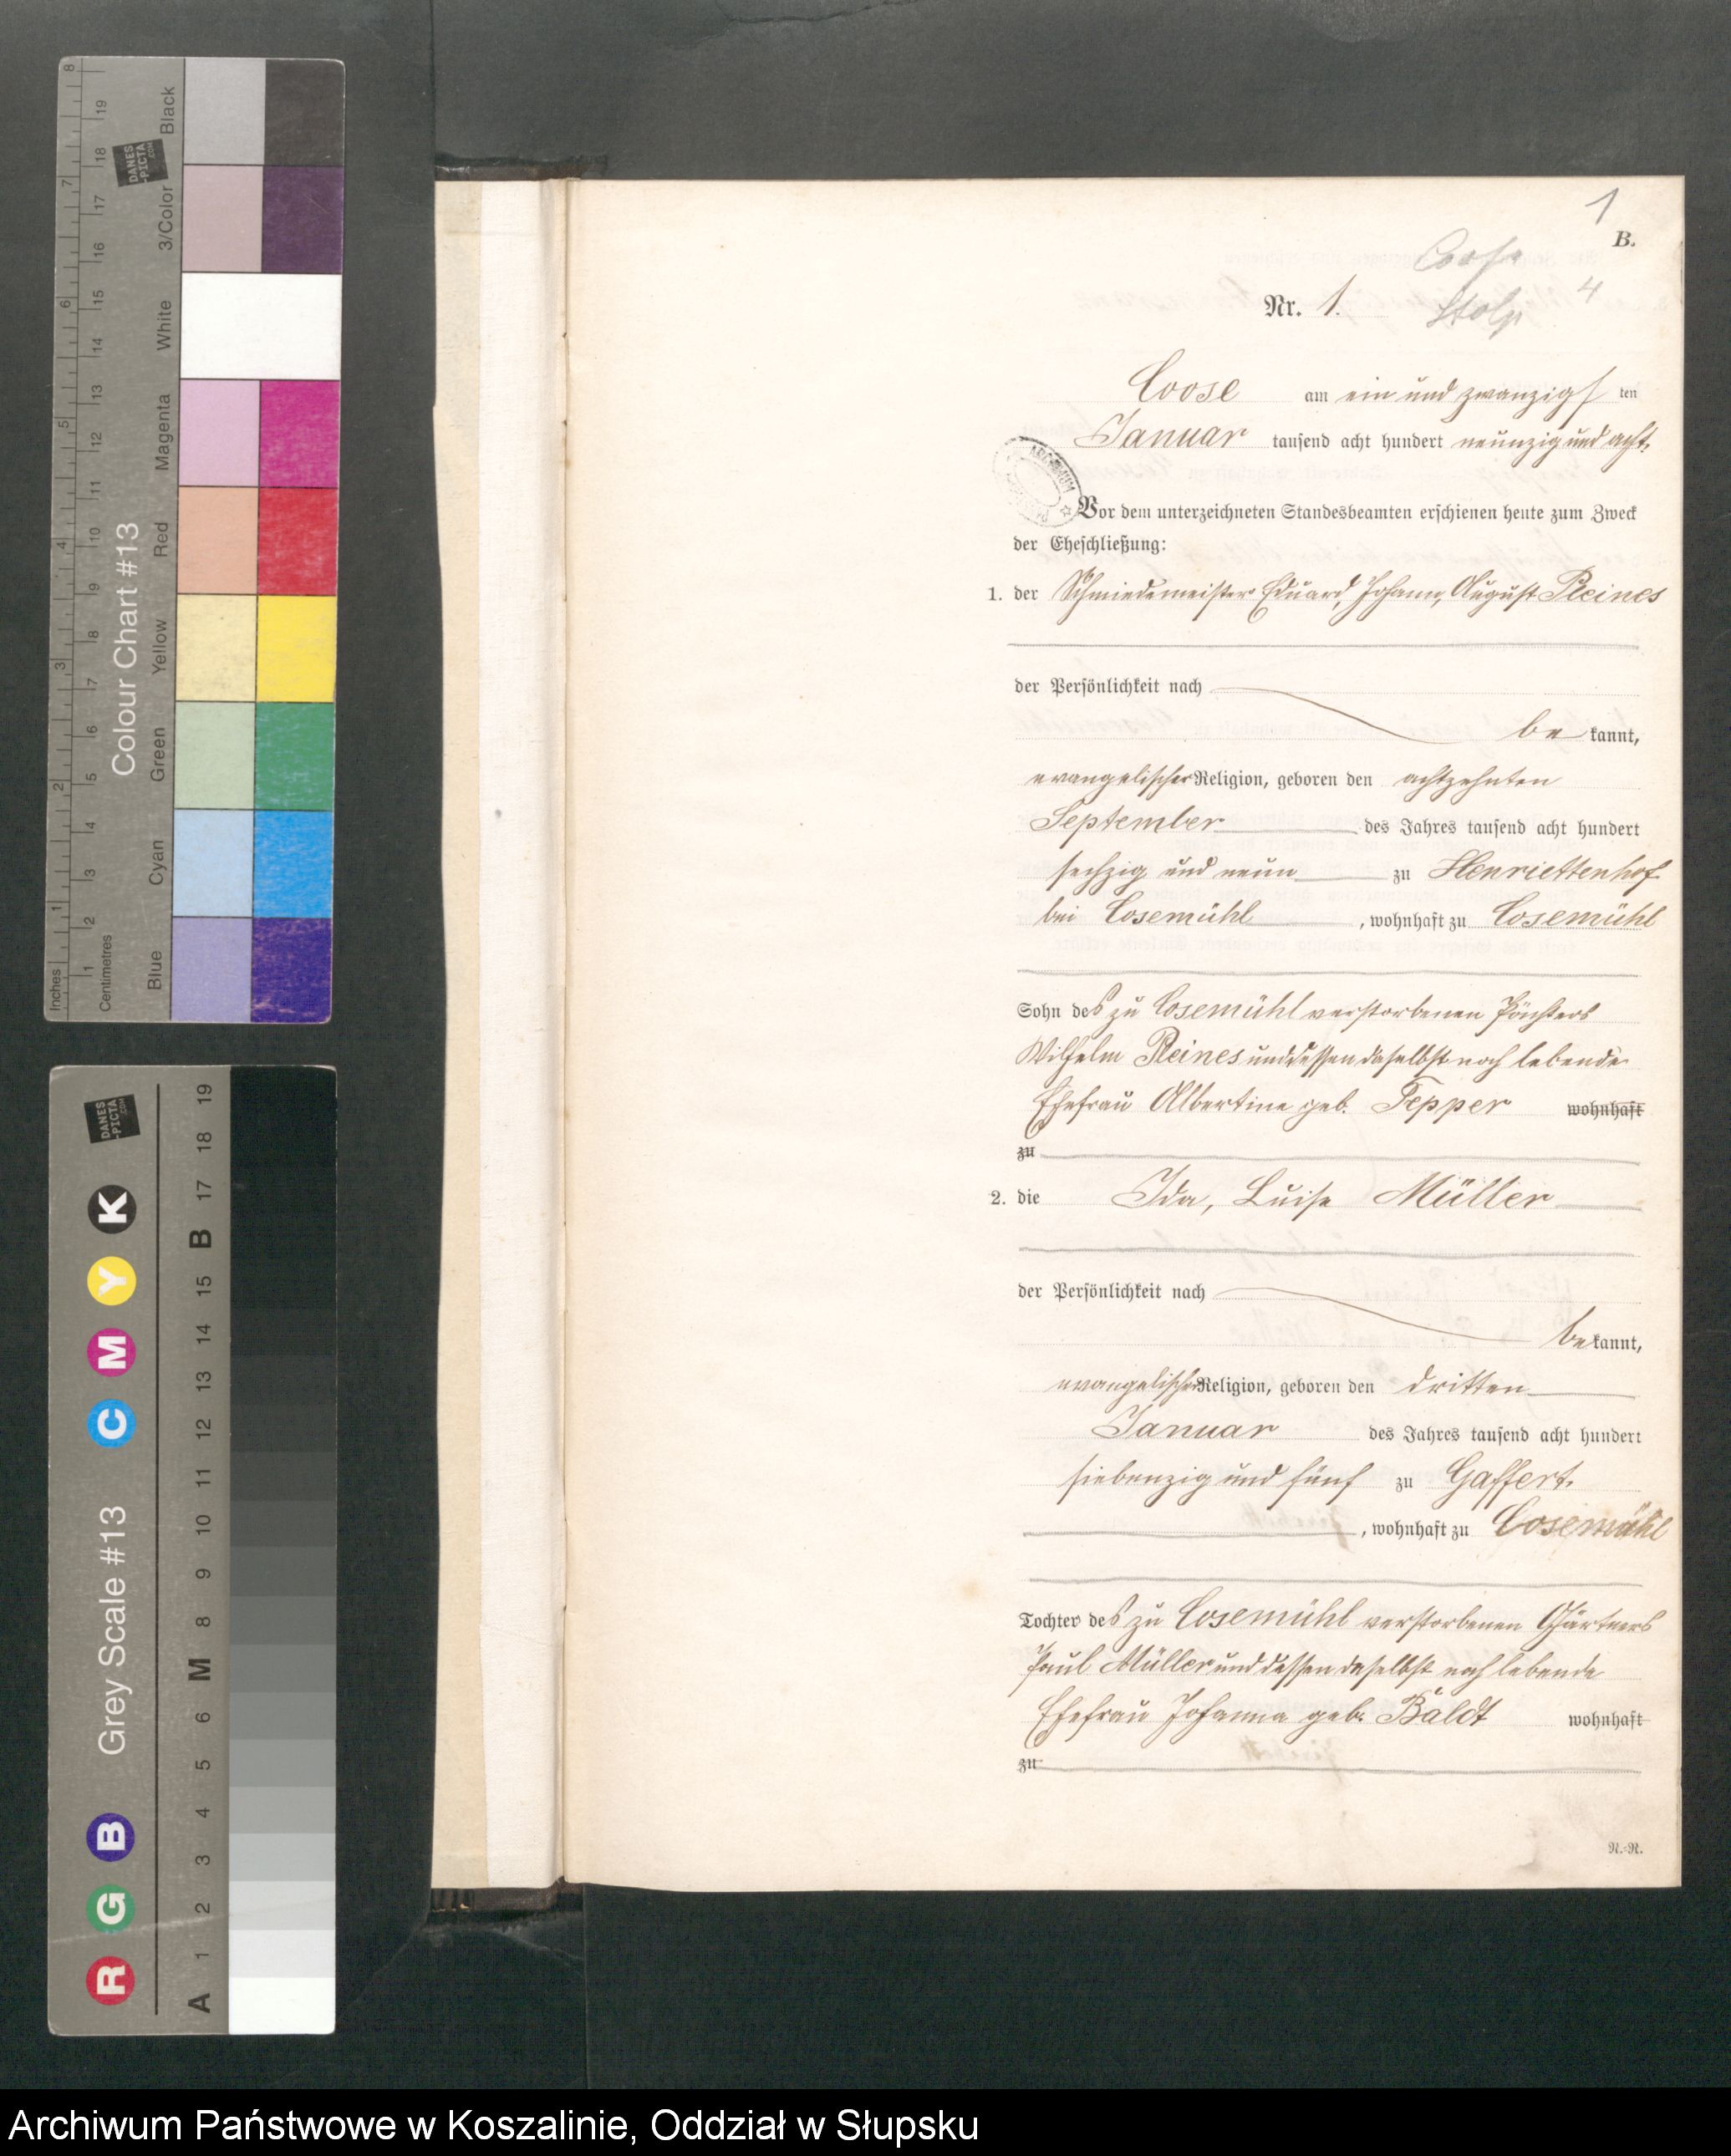 1
B.
Coose
Nr. 1.
Stolp
4
Coose am ein und zwanzigsten
Januar tausend acht hundert neunzig und acht.
Vor dem unterzeichneten Standesbeamten erschienen heute zum Zweck
der Eheschließung:
1. der Schmiedemeister Eduard, Johann, August Pleines
der Persönlichkeit nach
be kannt,
evangelischer Religion, geboren den achtzehnten
September des Jahres tausend acht hundert
sechzig und neun zu Henriettenhof
bei Cosemühl, wohnhaft zu Cosemühl
Sohn des zu Cosemühl verstorbenen Pächters
Wilhelm Pleines und dessen daselbst noch lebende
Ehefrau Albertine geb. Tepper wohnhaft
zu
2. die Ida, Luise Müller
der Persönlichkeit nach
be kannt,
evangelischer Religion, geboren den dritten
Januar des Jahres tausend acht hundert
siebenzig und fünf zu Gaffert.
, wohnhaft zu Cosemühl
Tochter des zu Cosemühl verstorbenen Gärtners
Paul Müller und dessen daselbst noch lebende
Ehefrau Johanna geb. Baldt wohnhaft
zu
N.-N.
Inches 1 2 3 4 5 6 7 8
Centimetres 1 2 3 4 5 6 7 8 9 10 11 12 13 14 15 16 17 18 19
Colour Chart #13
Blue Cyan Green Yellow Red Magenta White 3/Color Black
DANES
-PICTA
.COM
Grey Scale #13
R G B C M Y K
A 1 2 3 4 5 6 M 8 9 10 11 12 13 14 15 B 17 18 19
DANES
-PICTA
.COM
Archiwum Państwowe w Koszalinie, Oddział w Słupsku